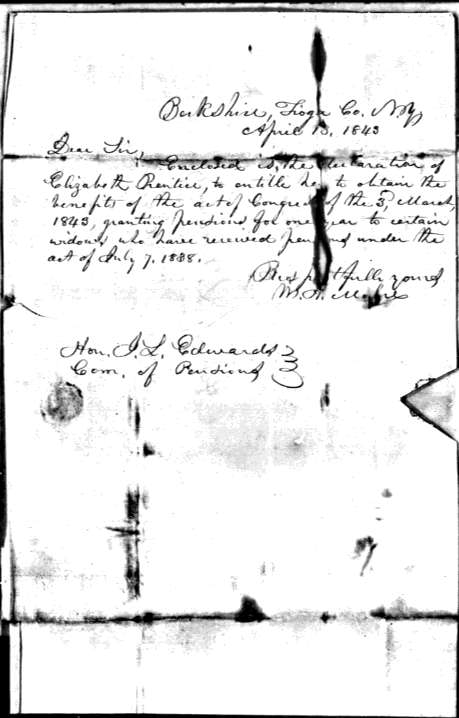 Berkshire, Tioga Co. NY,
April 13, 1843
Dear Sir,
Enclosed is the declaration of
Elizabeth Prentice, to entitle her to obtain the
benefits of the act of Congress of the 3d March,
1843, granting pensions for one year to certain
widows who have received pensions under the
act of July 7, 1838.
Respectfully yours
W. H. Moore
Hon. J. L. Edwards
Com. of Pensions